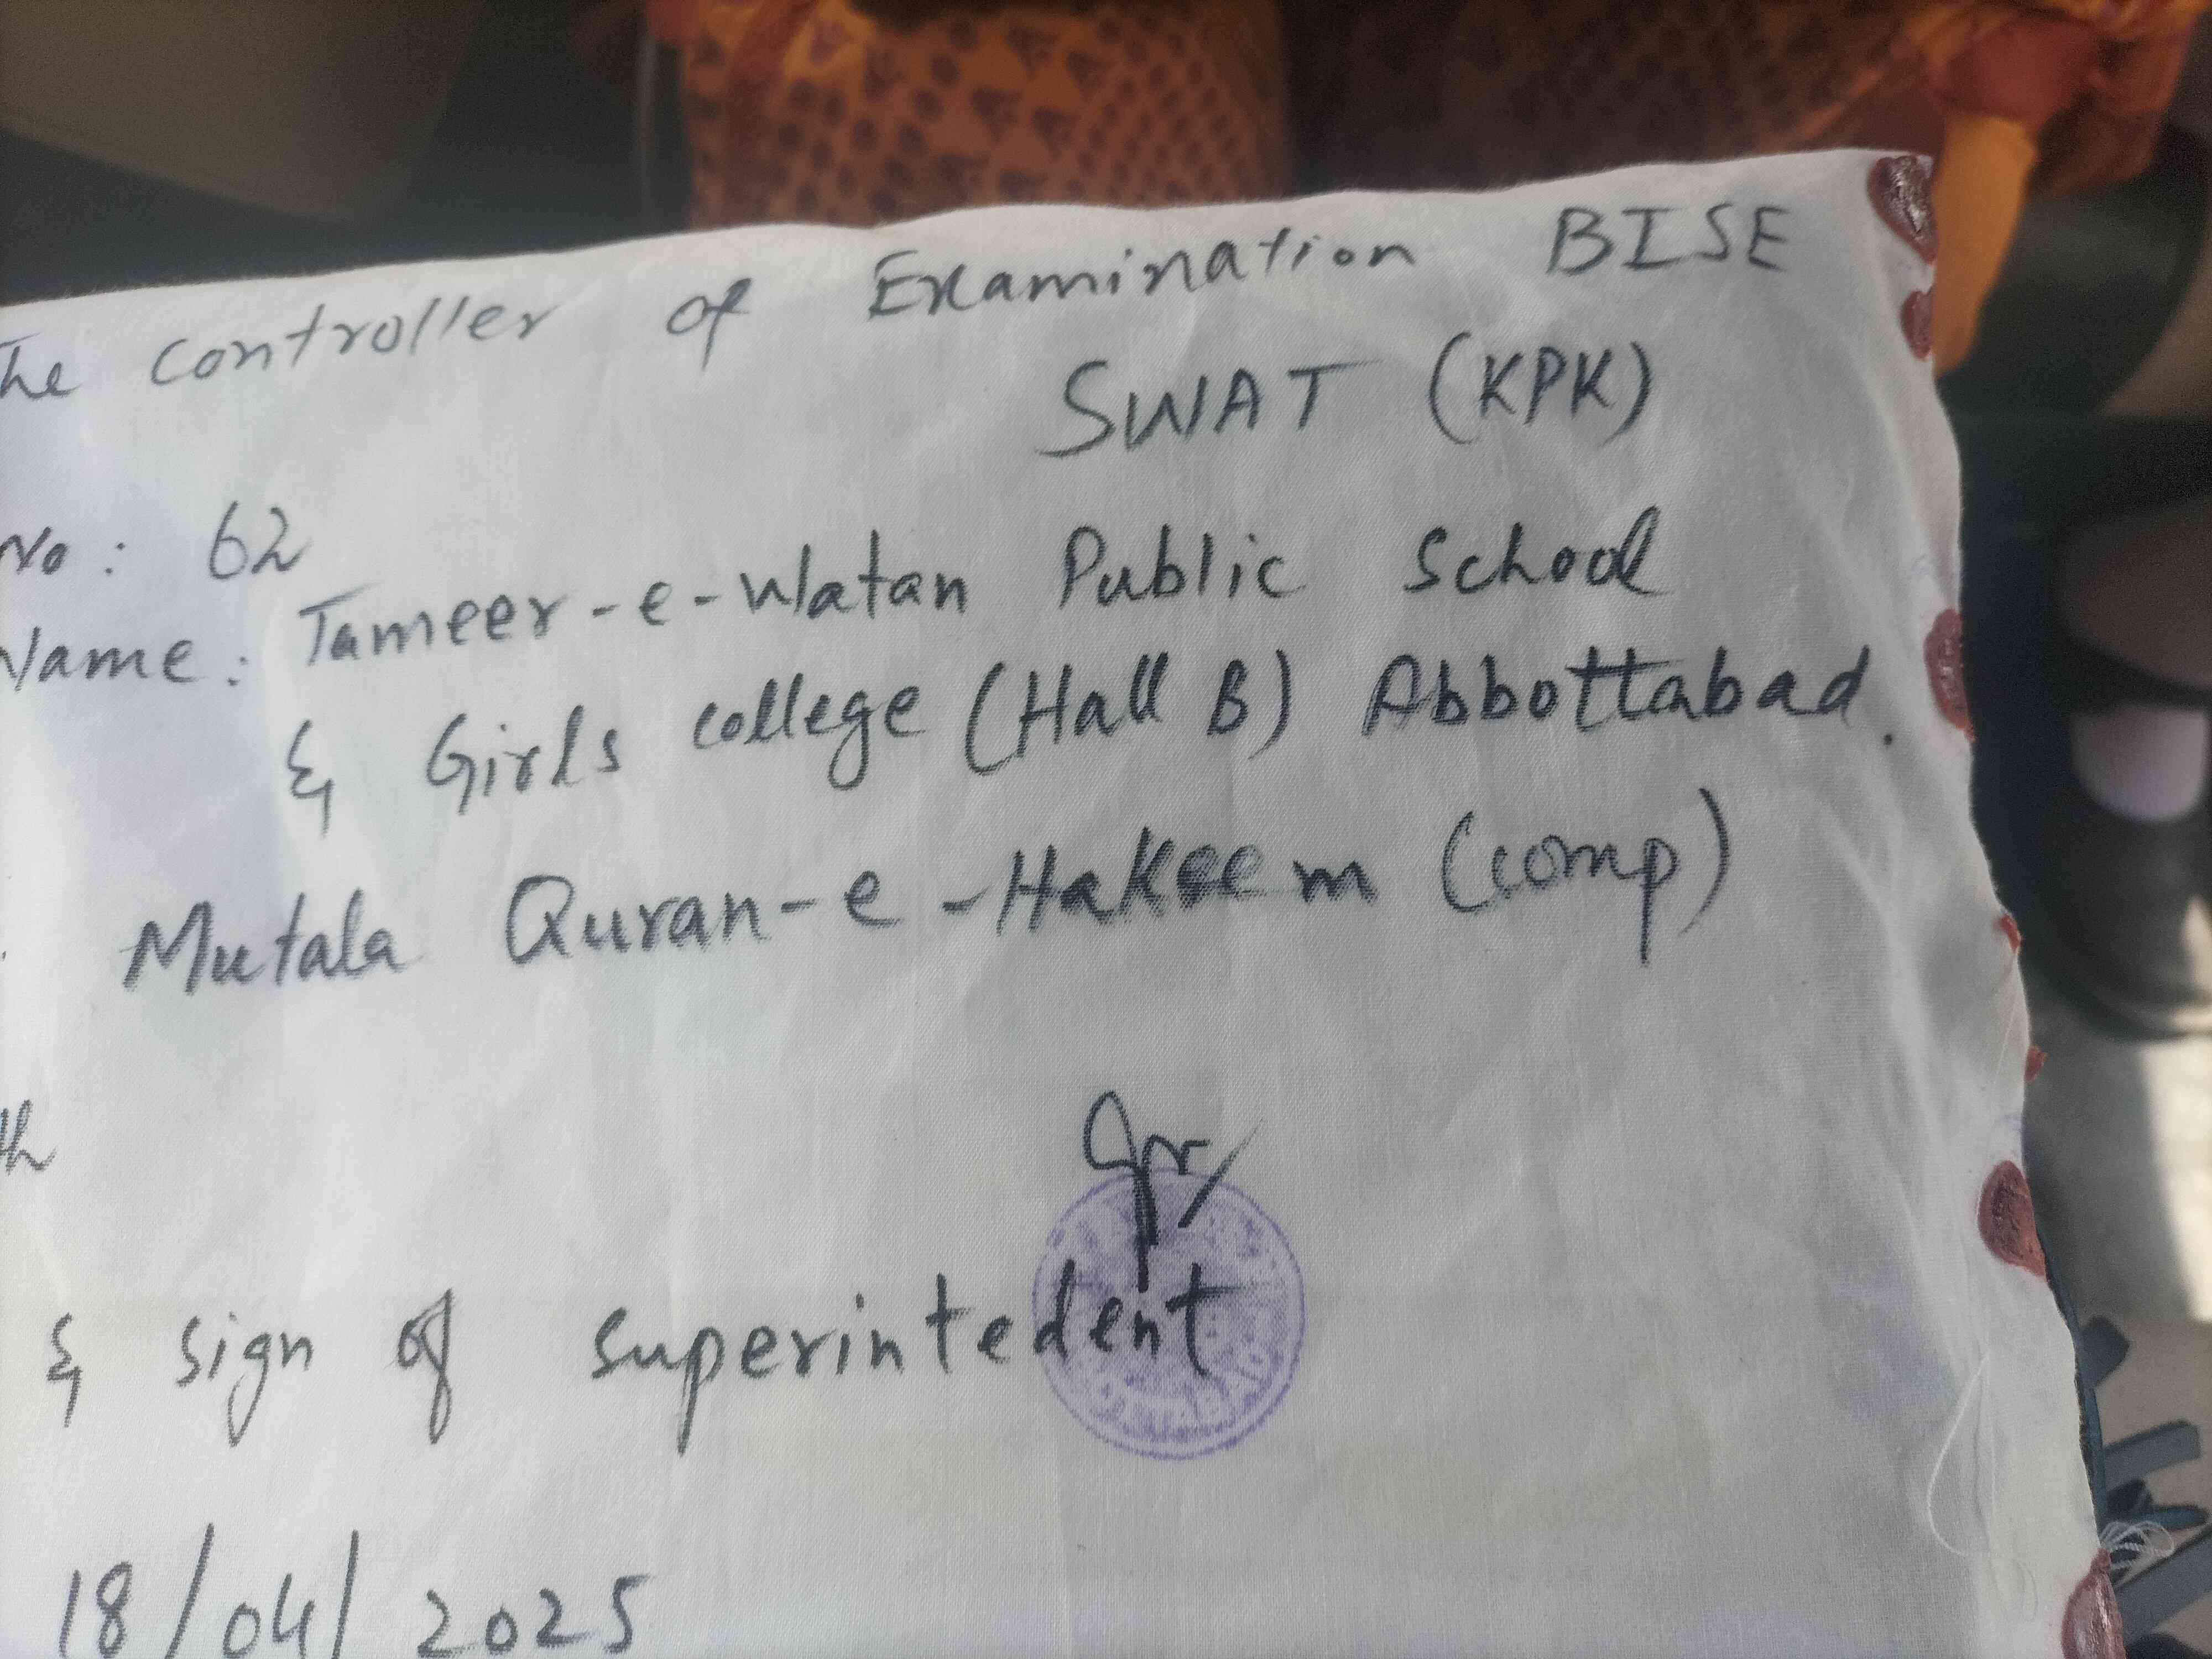 The Controller of Examination BISE
SWAT (KPK)
No: 62
Name: Tameer-e-Watan Public School
& Girls college (Hall B) Abbottabad.
Mutala Quran-e-Hakeem (comp)
th
& sign of superintedent
18/04/2025